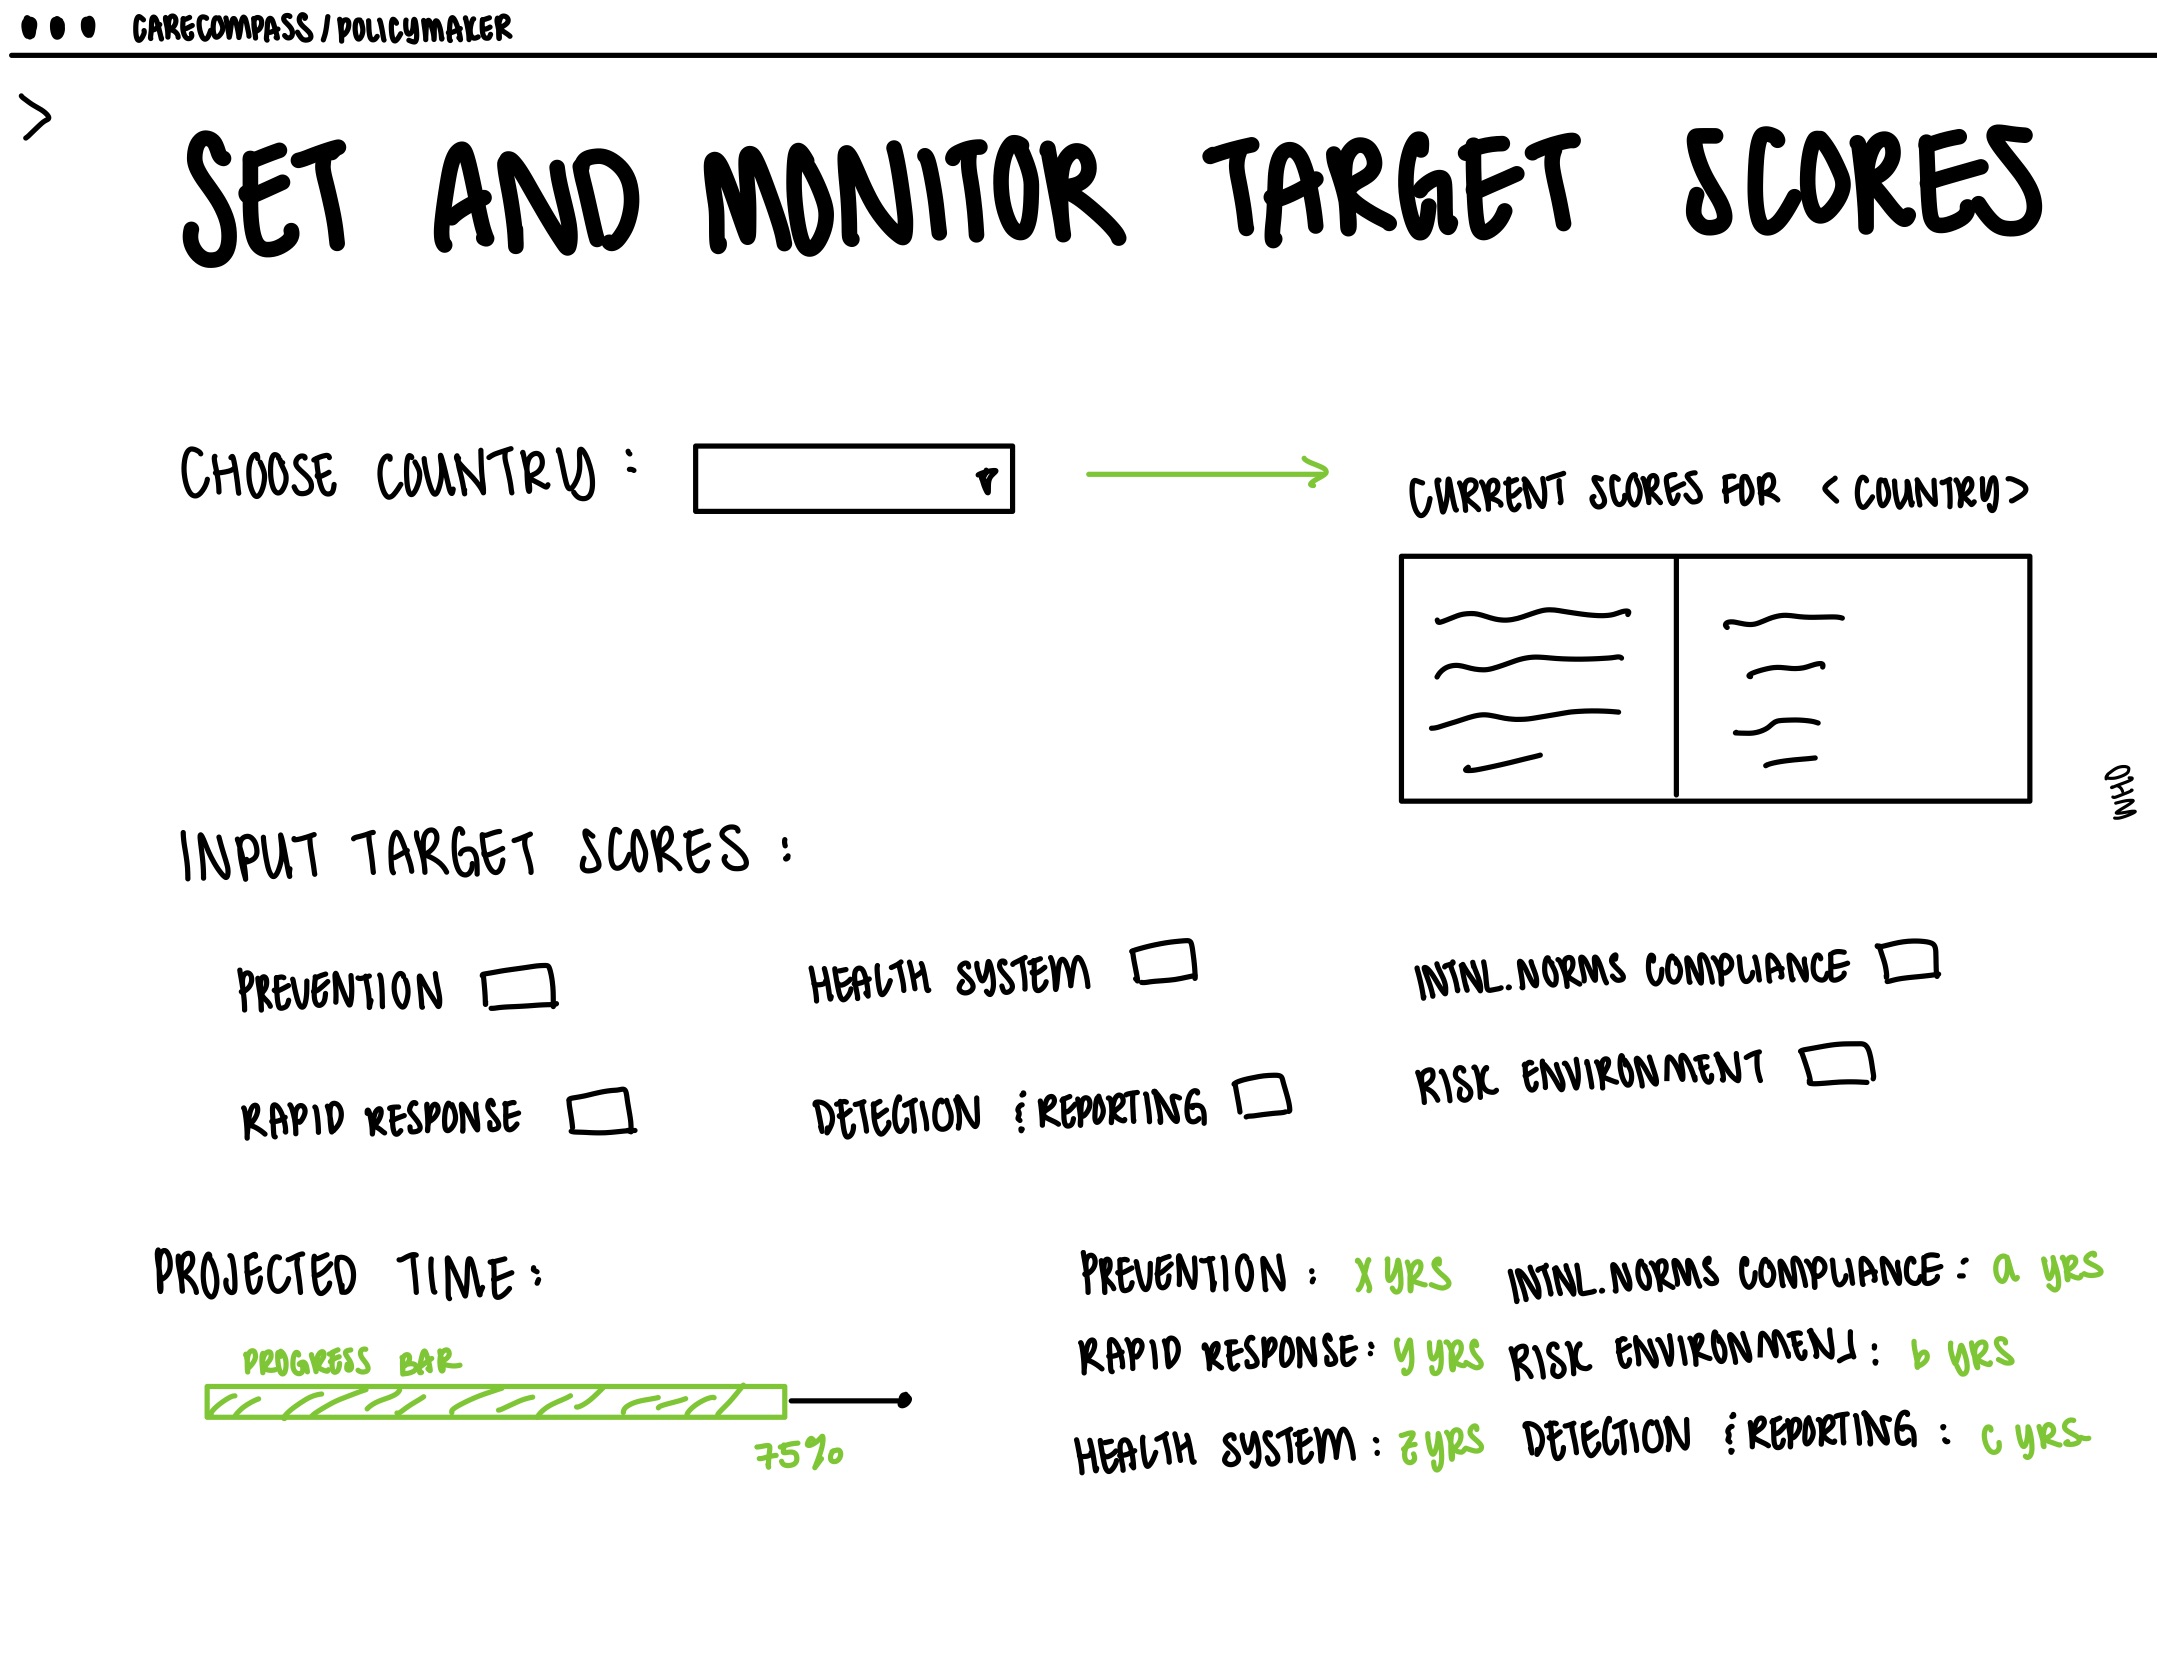 CARECOMPASS/POLICYMAKER
>
SET AND MONITOR TARGET SCORES
CHOOSE COUNTRY:
CURRENT SCORES FOR <COUNTRY>
INPUT TARGET SCORES:
PREVENTION
HEALTH SYSTEM
INTNL. NORMS COMPLIANCE
RAPID RESPONSE
DETECTION & REPORTING
RISK ENVIRONMENT
PROJECTED TIME:
PROGRESS BAR
75%
PREVENTION: X YRS
INTNL. NORMS COMPLIANCE: a YRS
RAPID RESPONSE: Y YRS
RISK ENVIRONMENT: b YRS
HEALTH SYSTEM: Z YRS
DETECTION & REPORTING: C YRS